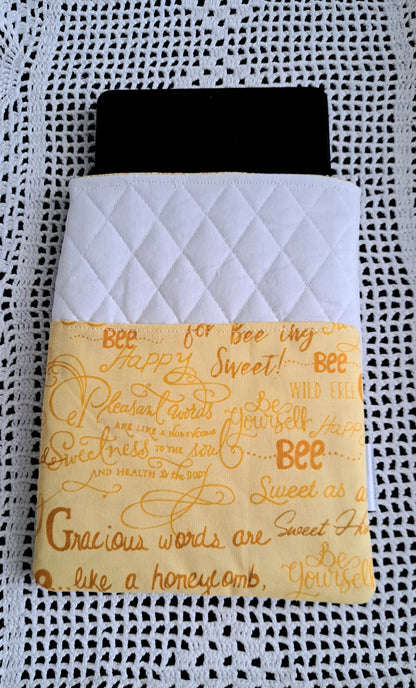 Bee for Bee ing
Happy Sweet! Bee
Pleasant words WILD FREE
ARE LIKE A HONEYCOMB Be Yourself Happy
Sweetness TO THE soul Bee
AND HEALTH to the BODY
Sweet as a
Gracious words are Sweet
Be Yourself
like a honeycomb,